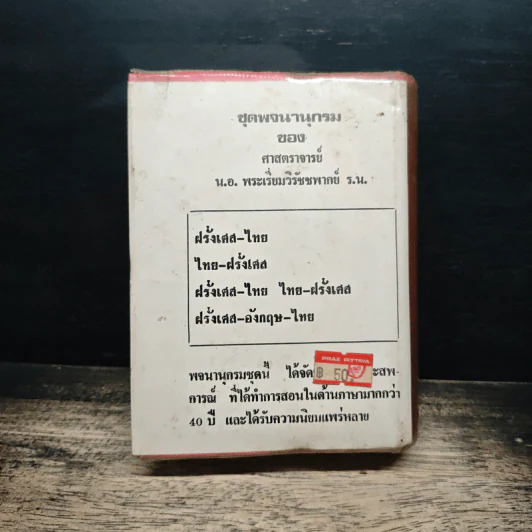 ชุดพจนานุกรม
ของ
ศาสตราจารย์
น.อ. พระเรี่ยมวิรัชชพากย์ ร.น.
ฝรั่งเศส-ไทย
ไทย-ฝรั่งเศส
ฝรั่งเศส-ไทย ไทย-ฝรั่งเศส
ฝรั่งเศส-อังกฤษ-ไทย
พจนานุกรมชุดนี้ ได้จัด
฿ 50
การณ์ ที่ได้ทำการสอนในด้านภาษามากกว่า
40 ปี และได้รับความนิยมแพร่หลาย